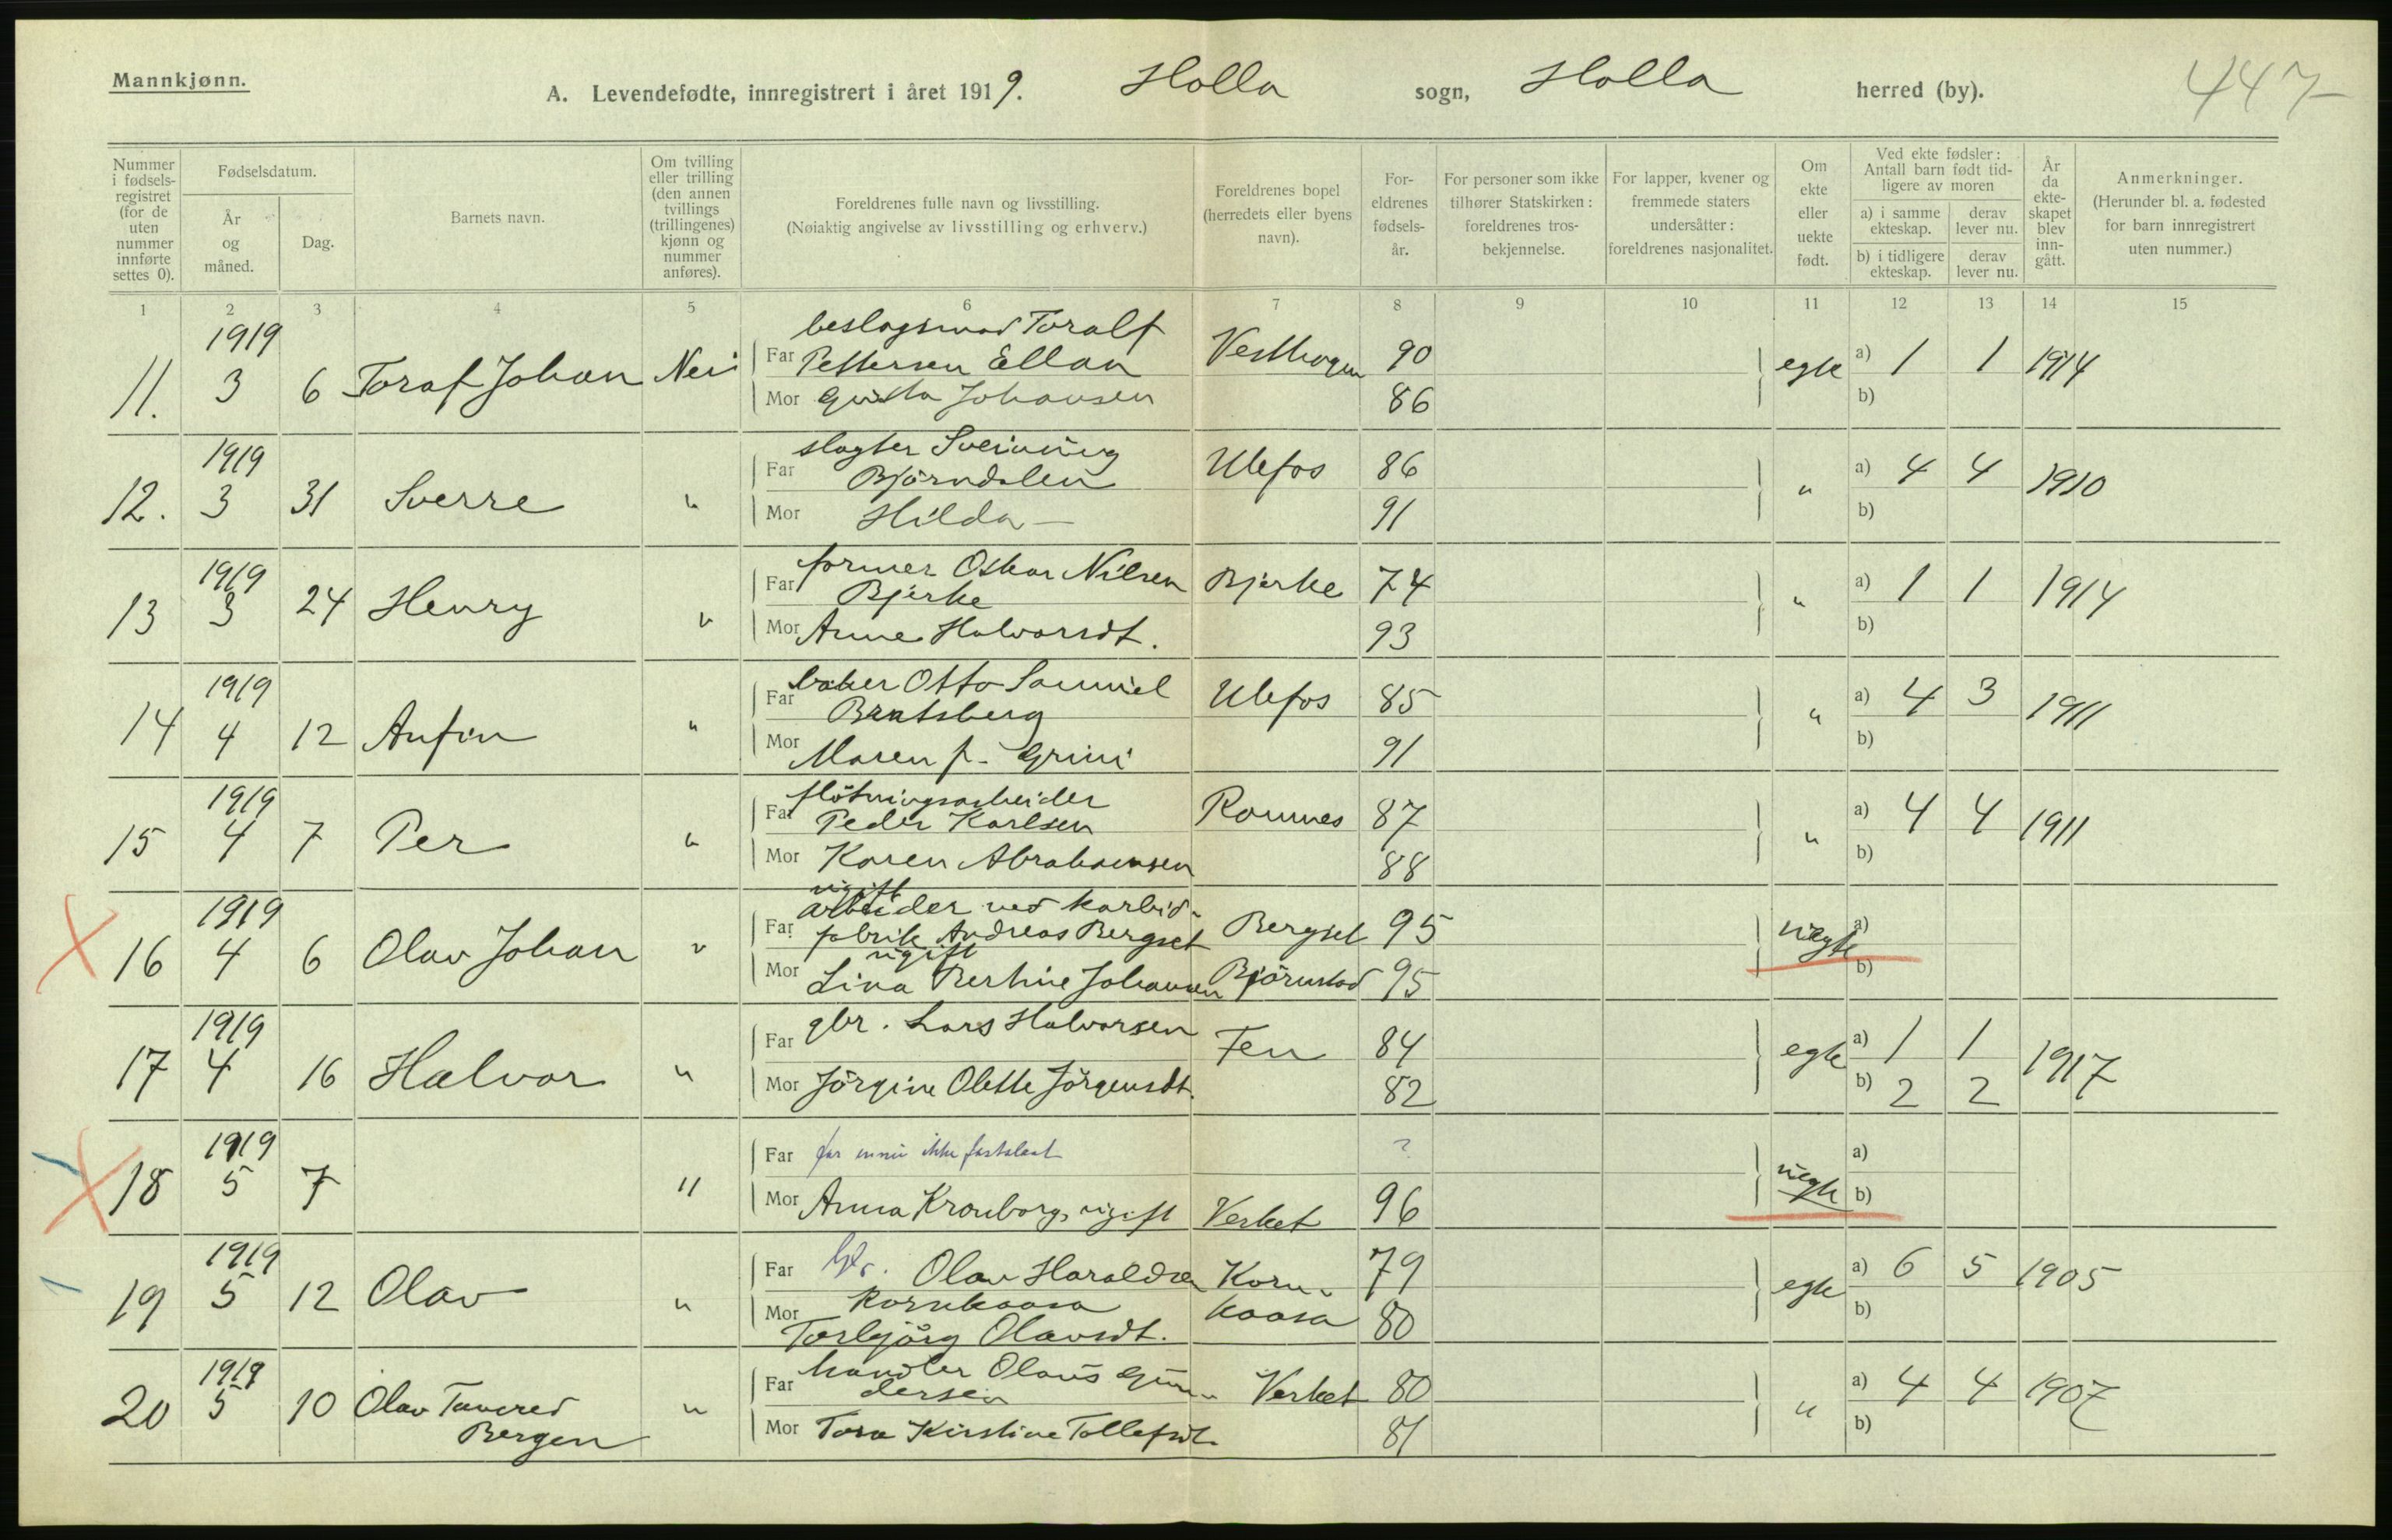 Mannkjønn.
A. Levendefødte, innregistrert i året 1919. Holla sogn, Holla herred (by).
447
Nummer i fødselsregistret (for de uten nummer innførte settes 0).
Fødselsdatum.
År og måned.
Dag.
Barnets navn.
Om tvilling eller trilling (den annen tvillings (trillingenes) kjønn og nummer anføres).
Foreldrenes fulle navn og livsstilling.
(Nøiaktig angivelse av livsstilling og erhverv.)
Foreldrenes bopel (herredets eller byens navn).
Foreldrenes fødselsår.
For personer som ikke tilhører Statskirken: foreldrenes trosbekjennelse.
For lapper, kvener og fremmede staters undersåtter: foreldrenes nasjonalitet.
Om ekte eller uekte født.
Ved ekte fødsler: Antall barn født tidligere av moren
a) i samme ekteskap. derav lever nu.
b) i tidligere ekteskap. derav lever nu.
År da ekteskapet blev inngått.
Anmerkninger.
(Herunder bl. a. fødested for barn innregistrert uten nummer.)
1 2 3 4 5 6 7 8 9 10 11 12 13 14 15
1919 Toralf
11. 3 6 Toraf Johan Nei Far Pettersen Ellan 90 egte a) 1 1 1914
Mor Johansen 86 b)
1919 slagter Sveinung
12. 3 31 Sverre " Far Bjørndalen Ulefos 86 " a) 4 4 1910
Mor Hilda — 91 b)
1919 former Oskar Nilsen
13 3 24 Henry " Far Bjerke Bjerke 74 " a) 1 1 1914
Mor Anne Halvorsdt. 93 b)
1919 baker Otto Samuel
14 4 12 Anfin " Far Bratsberg Ulefos 85 " a) 4 3 1911
Mor Maren f. Grini 91 b)
1919 fløtningsarbeider
15 4 7 Per " Far Peder Karlsen Romnes 87 " a) 4 4 1911
Mor Karen Abrahamsen 88 b)
ugift
1919 arbeider ved karbid-
16 4 6 Olav Johan " Far fabrik Andreas Bergset Bergset 95 uegte a)
ugift
Mor Lina Bertine Johansen Bjørnstad 95 b)
1919
17 4 16 Halvor " Far gbr. Lars Halvorsen Fen 84 egte a) 1 1 1917
Mor Jørgine Olette Jørgensdt. 82 b) 2 2
1919
18 5 7 " Far far ennu ikke fastslaat ? uegte a)
Mor Anna Kronborg, ugift Verket 96 b)
1919
19 5 12 Olav " Far Olav Haraldsen Korn- 79 egte a) 6 5 1905
Kornkaasa kaasa
Mor Torbjørg Olavsdt. 80 b)
1919 handler Olaus Gun-
20 5 10 Olav Tancred " Far dersen Verket 80 " a) 4 4 1907
Bergen Mor Tora Kirstine Tollefsdt. 81 b)